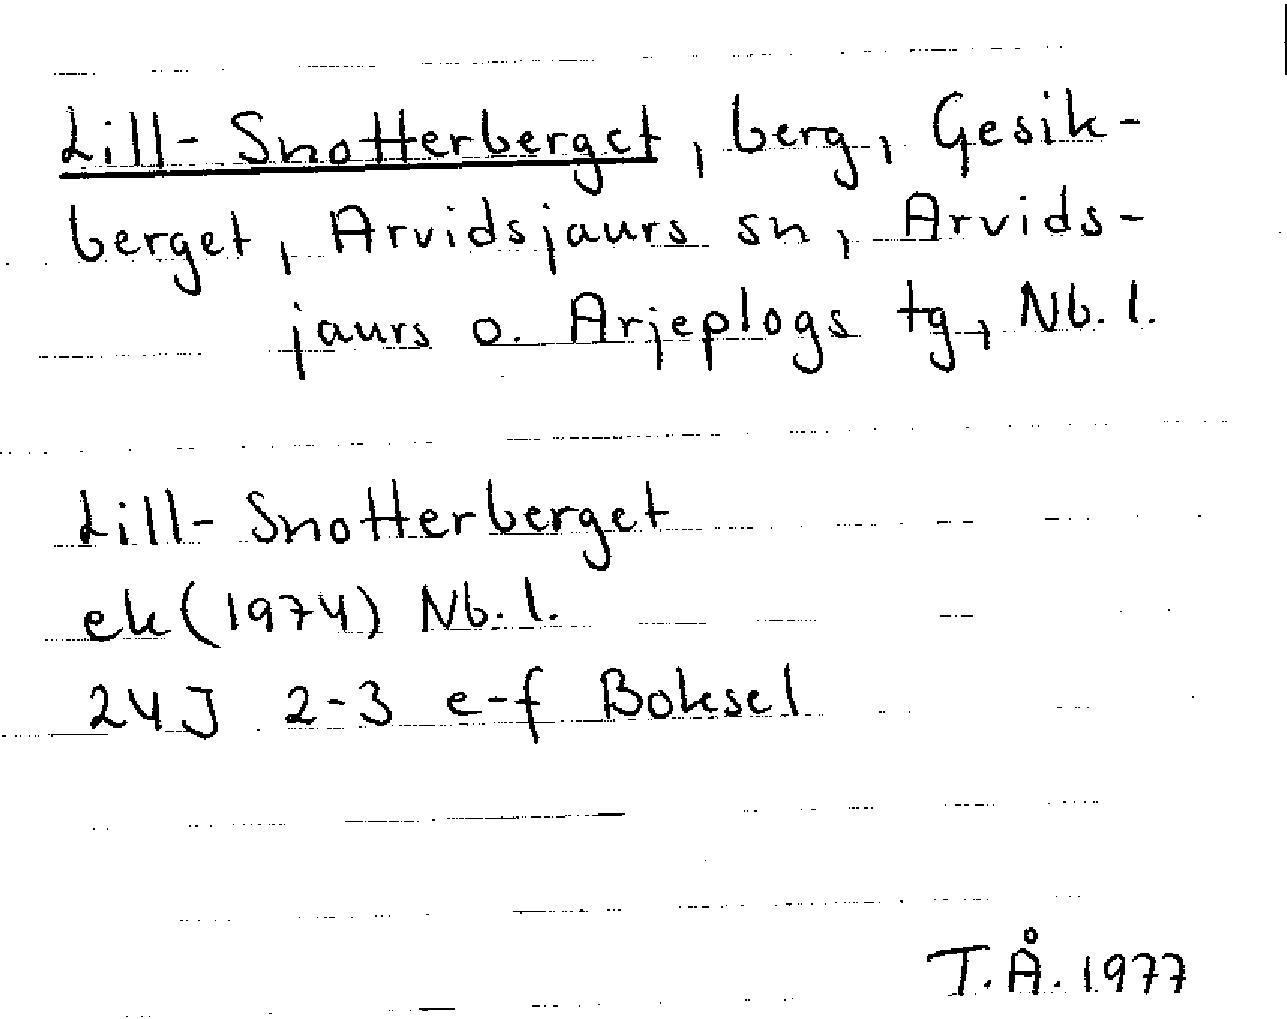 Lill-Snotterberget, berg, Gesik-
berget, Arvidsjaurs sn, Arvids-
jaurs o. Arjeplogs tg, Nb. l.
Lill-Snotterberget
ek (1974) Nb. l.
24J 2-3 e-f Boksel
T.Å. 1977